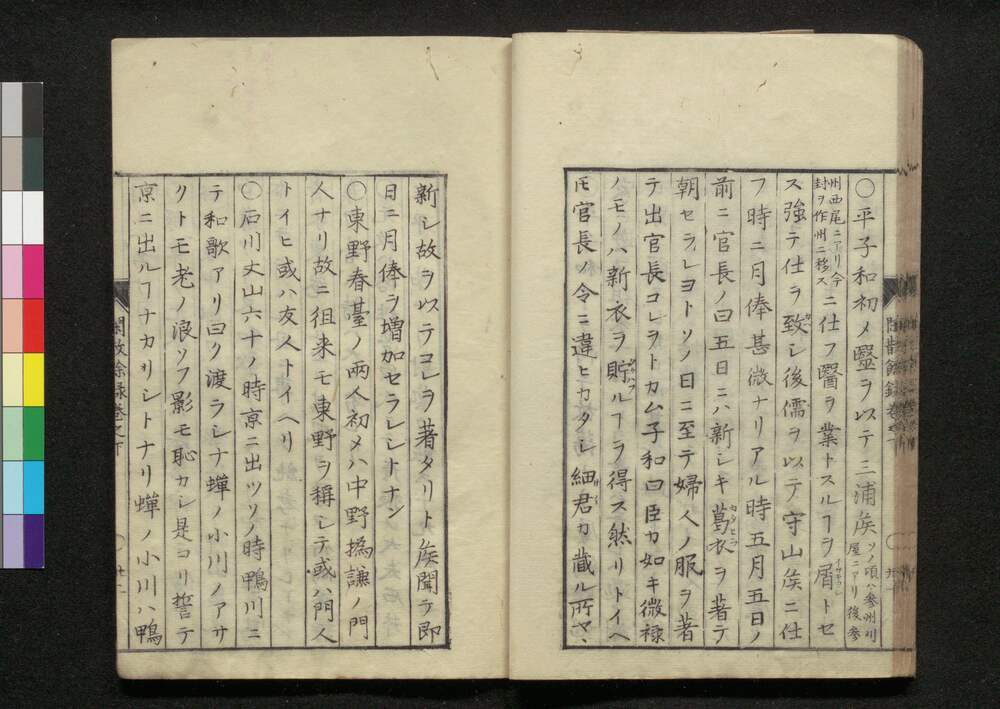 〇平子和初メ毉ヲ以テ三浦矦ソノ頃ハ参州刈
屋ニアリ後参
州西尾ニアリ今
封ヲ作州ニ移スニ仕フ醫ヲ業トスルヿヲ屑トセ
ス強テ仕ヲ致シ後儒ヲ以テ守山矦ニ仕
フ時ニ月俸甚微ナリアル時五月五日ノ
前ニ官長ノ曰五日ニハ新シキ葛衣ヲ著テ
カタビラ
朝セラレヨトソノ日ニ至テ婦人ノ服ヲ著
テ出官長コレヲトカム子和曰臣カ如キ微禄
ノモノハ新衣ヲ貯ルヿヲ得ス然リトイヘ
𪜈官長ノ令ニ違ヒカタシ細君カ蔵ル所マヽ
新シ故ヲ以テコレヲ著タリト矦聞テ即
日ニ月俸ヲ増加セラレシトナン
〇東野春臺ノ両人初メハ中野撝謙ノ門
人ナリ故ニ徂来モ東野ヲ稱シテ或ハ門人
トイヒ或ハ友人トイヘリ
〇石川丈山六十ノ時京ニ出ツソノ時鴨川ニ
テ和歌アリ曰ク渡ラシナ蟬ノ小川ノアサ
クトモ老ノ浪ソフ影モ恥カシ是ヨリ誓テ
京ニ出ルヿナカリシトナリ蟬ノ小川ハ鴨
閑散餘録巻之下